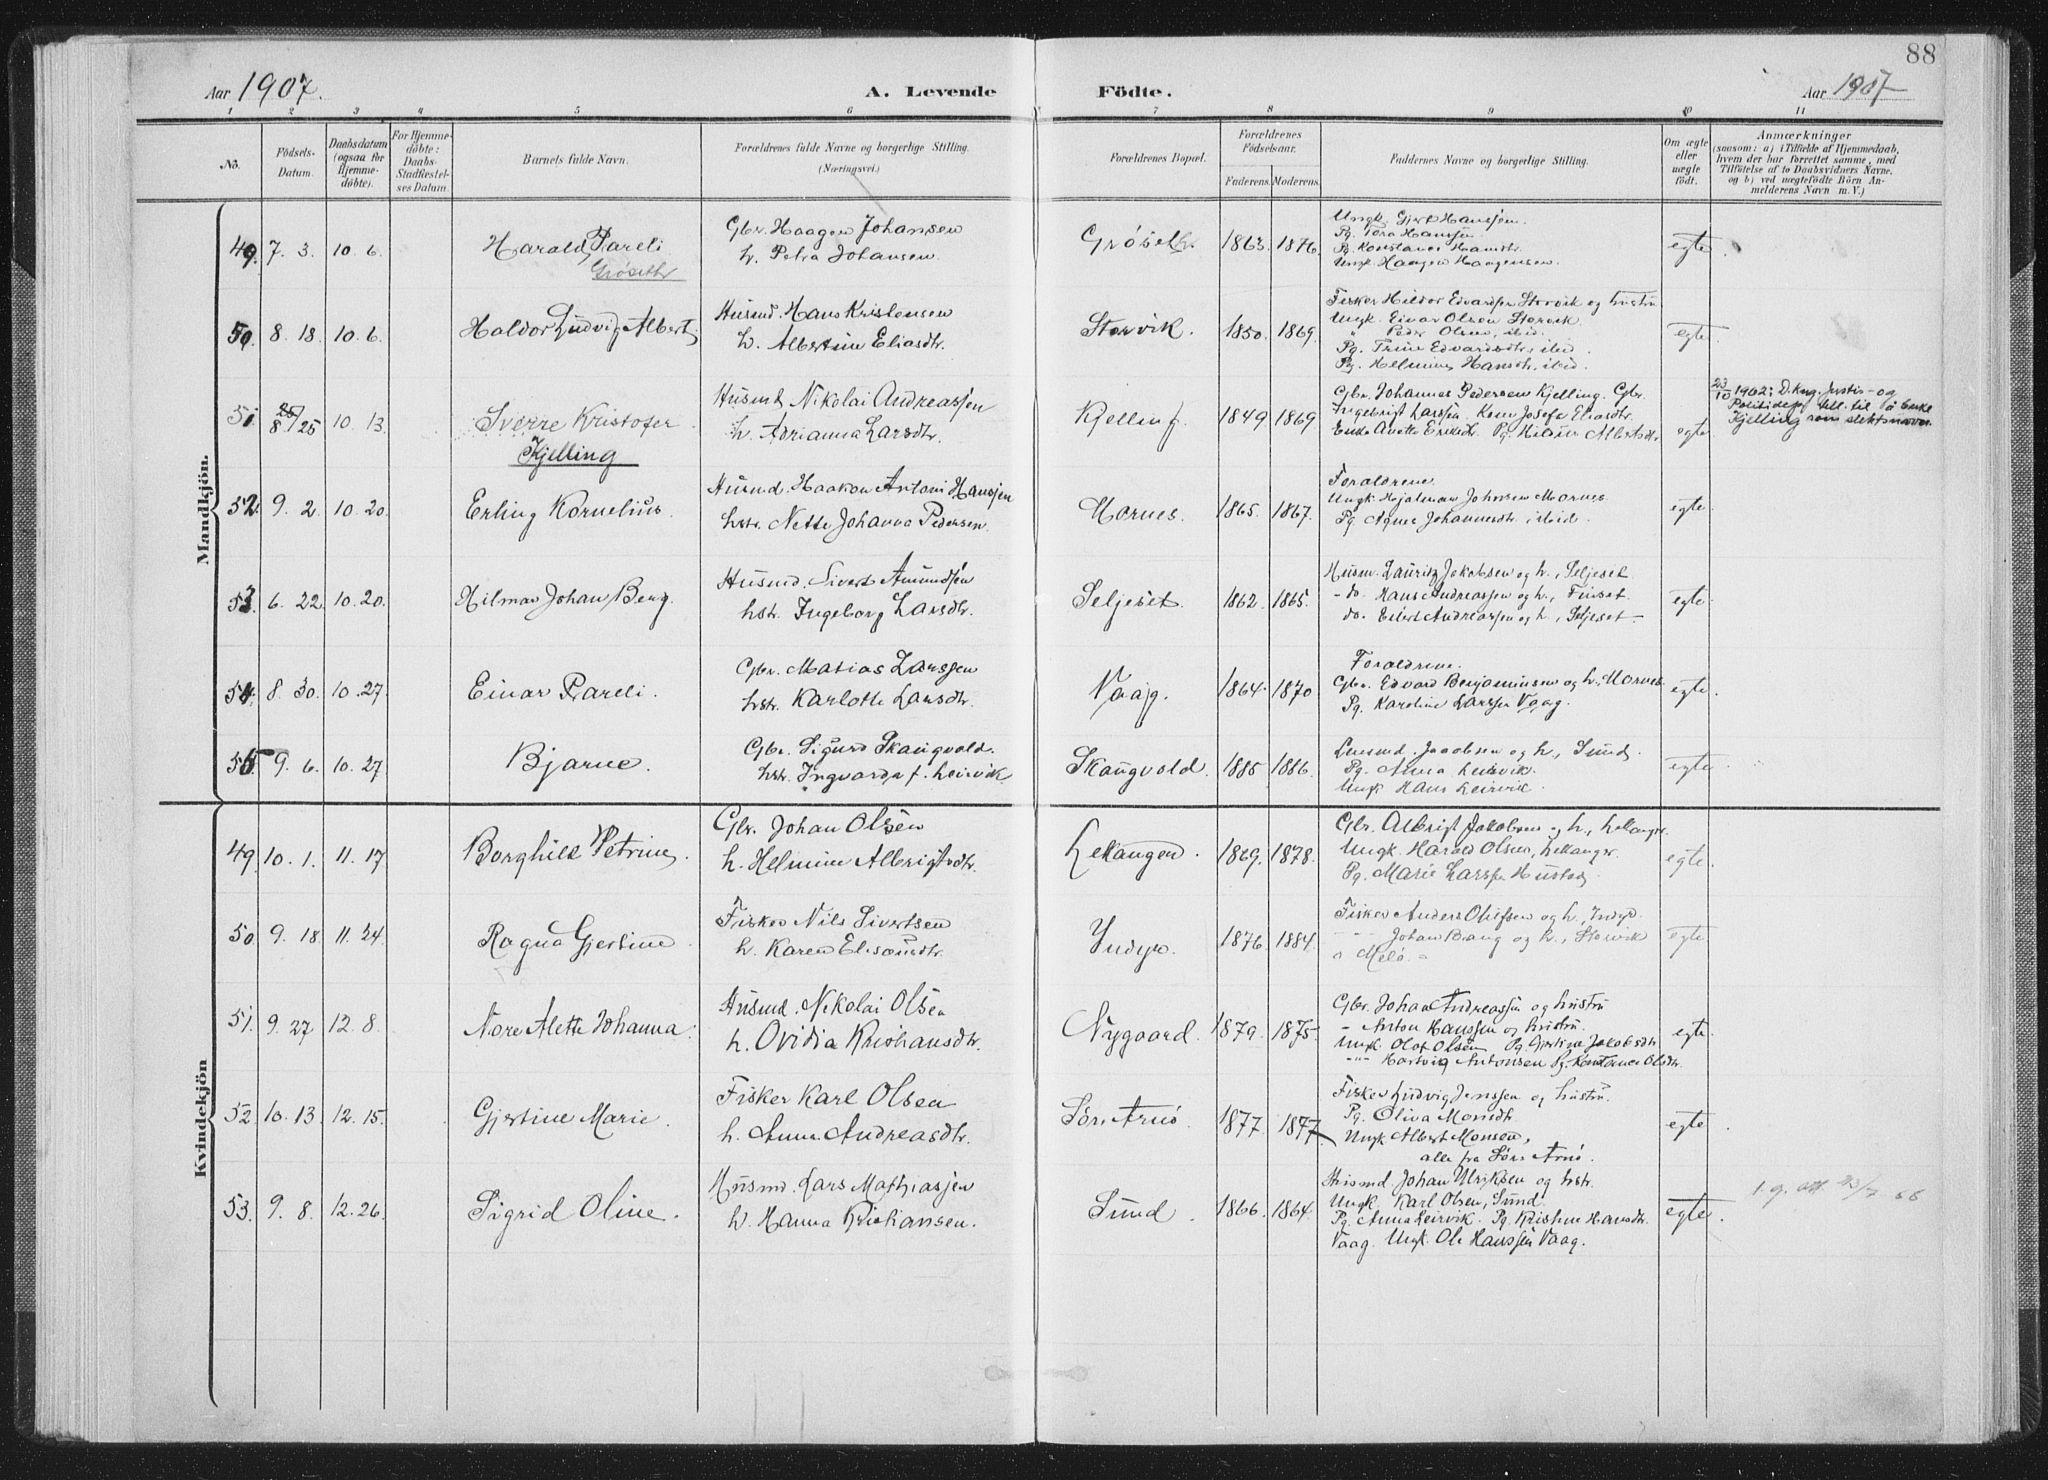 88
Aar 1907.
A. Levende
Födte.
Aar 1907
1 2 3 4 5 6 7 8 9 10 11
No.
Födsels-
Datum.
Daabsdatum
(ogsaa for
Hjemme-
döbte).
For Hjemme-
döbte:
Daabs-
Stadfæstel-
ses Datum.
Barnets fulde Navn.
Forældrenes fulde Navne og borgerlige Stilling.
(Næringsvei.)
Forældrenes Bopæl.
Forældrenes
Födselsaar.
Faderens. Moderens.
Faddernes Navne og borgerlige Stilling.
Om ægte
eller
uægte
födt.
Anmærkninger
(saasom: a) i Tilfælde af Hjemmedaab,
hvem der har forrettet samme, med
Tilföielse af to Daabsvidners Navne,
og b) ved uægtefödte Börn An-
melderens Navn m. V.)
Mandkjön.
49. 7. 3. 10. 6. Harald Pareli
Gröseth
Gbr. Haagen Johansen
h. Petra Johansen.
Gröseth. 1863. 1876.
Ungk. Gjert Hanssen.
Pg. Tora Hanssen
Pg. Konstance Hansdtr.
Ungk. Haagen Haagensen.
egte.
50. 8. 18. 10. 6. Haldor Ludvig Albert
Husmd. Hans Kristensen
h. Albertine Eliasdtr.
Storvik. 1850. 1869.
Fisker Hildor Edvardsen Storvik og hustru
Ungk. Einar Olsen Storvik.
" Peder Olsen, ibid.
Pg. Trine Edvardsdtr., ibid.
Pg. Helmine Hansdtr., ibid.
egte.
51. 25/8 25 10. 13. Sverre Kristofer
Kjelling
Husmd. Nikolai Andreassen
h. Adrianna Larsdtr.
Kjelling. 1849 1869
Gbr. Johannes Pedersen Kjelling. Gbr.
Ingebrigt Larssen. Kone Josefa Eliasdtr.
Enke Anette Eriksdtr. Pg. Hilda Albertsdtr
egte.
23/10 1962: D. kng. Justis- og
Politidep. till. til å bruke
Kjelling som slektsnavn
52. 9. 2. 10. 20. Erling Kornelius.
Husmd. Haakon Antoni Hanssen
hstr. Nette Johanna Pedersen.
Mornes. 1865. 1867.
Foraldrene.
Ungk. Hjalmar Johnsen Mornes.
Pg. Agnes Johannesdtr. ibid.
egte.
53. 6. 22. 10. 20. Hilmar Johan Berg.
Husmd. Sivert Amundsen
hstr. Ingeborg Larsdtr.
Seljeset. 1862. 1865.
Husm. Lauritz Jakobsen og h., Seljeset
- do. Hans Andreassen og h., Finset.
do. Edvart Andreassen og h., Seljeset -
egte.
54. 8. 30. 10. 27. Einar Pareli.
Gbr. Matias Larssen
hstr. Karlotte Larsdtr.
Vaag. 1864. 1870
Foraldrene.
Gbr. Edvard Benjaminsen og h., Mornes.
Pg. Karoline Larssen Vaag.
egte.
55. 9. 6. 10. 27. Bjarne.
Gbr. Sigurd Skaugvold.
hstr. Ingvarda f. Leirvik
Skaugvold. 1885 1886.
Jacobsen og h., Sund,
Pg. Anna Leirvik.
Ungk Hans Leirvik.
egte.
Kvindekjön
49. 10. 1. 11. 17 Borghild Petrine.
Gbr. Johan Olsen
h. Helmine Albrigtsdtr.
Lekangen. 1869. 1878.
Gbr. Albrigt Jakobsen og h., Lekanger.
Ungk. Harald Olsen, Lekanger.
Pg. Marie Larssen Hustad.
egte
50. 9. 18. 11. 24. Ragna Gjertine.
Fisker Nils Sivertsen
h. Karen Elisæusdtr.
Yndye. 1876. 1884.
Fisker Anders Olufsen og h., Indyr
Johan Bang og h., Storvik
" Melö. "
egte
51. 9. 27 12. 8. Nora Alette Johanna.
Husmd. Nikolai Olsen
h. Ovidia Kristiansdtr.
Nygaard. 1879. 1875.
Gbr. Johan Andreassen og hustru
- Anton Hanssen og hustru.
Ungk. Olaf Olsen Pg. Gjertine Jakobsdtr
Hartvig Antonsen Pg. Konstance Olsdtr.
egte.
52. 10. 13. 12. 15. Gjertine Marie.
Fisker Karl Olsen
h. Anna Andreasdtr.
Sör. Arnö. 1877. 1877.
Fisker Ludvig Jenssen og hustru.
Pg. Oliva Monsdtr.
Ungk Albert Monsen,
alle fra Söre Arnö.
egte.
53. 9. 8. 12. 26. Sigrid Oline.
Husmd. Lars Mathiassen
h. Hanna Kristiansen.
Sund. 1866. 1864.
Husmd Johan Ulriksen og hstr.
Ungk. Karl Olsen, Sund.
Pg. Anna Leirvik. Pg. Kristine Hansdtr.
Vaag. Ungk. Ole Hanssen Vaag.
egte.